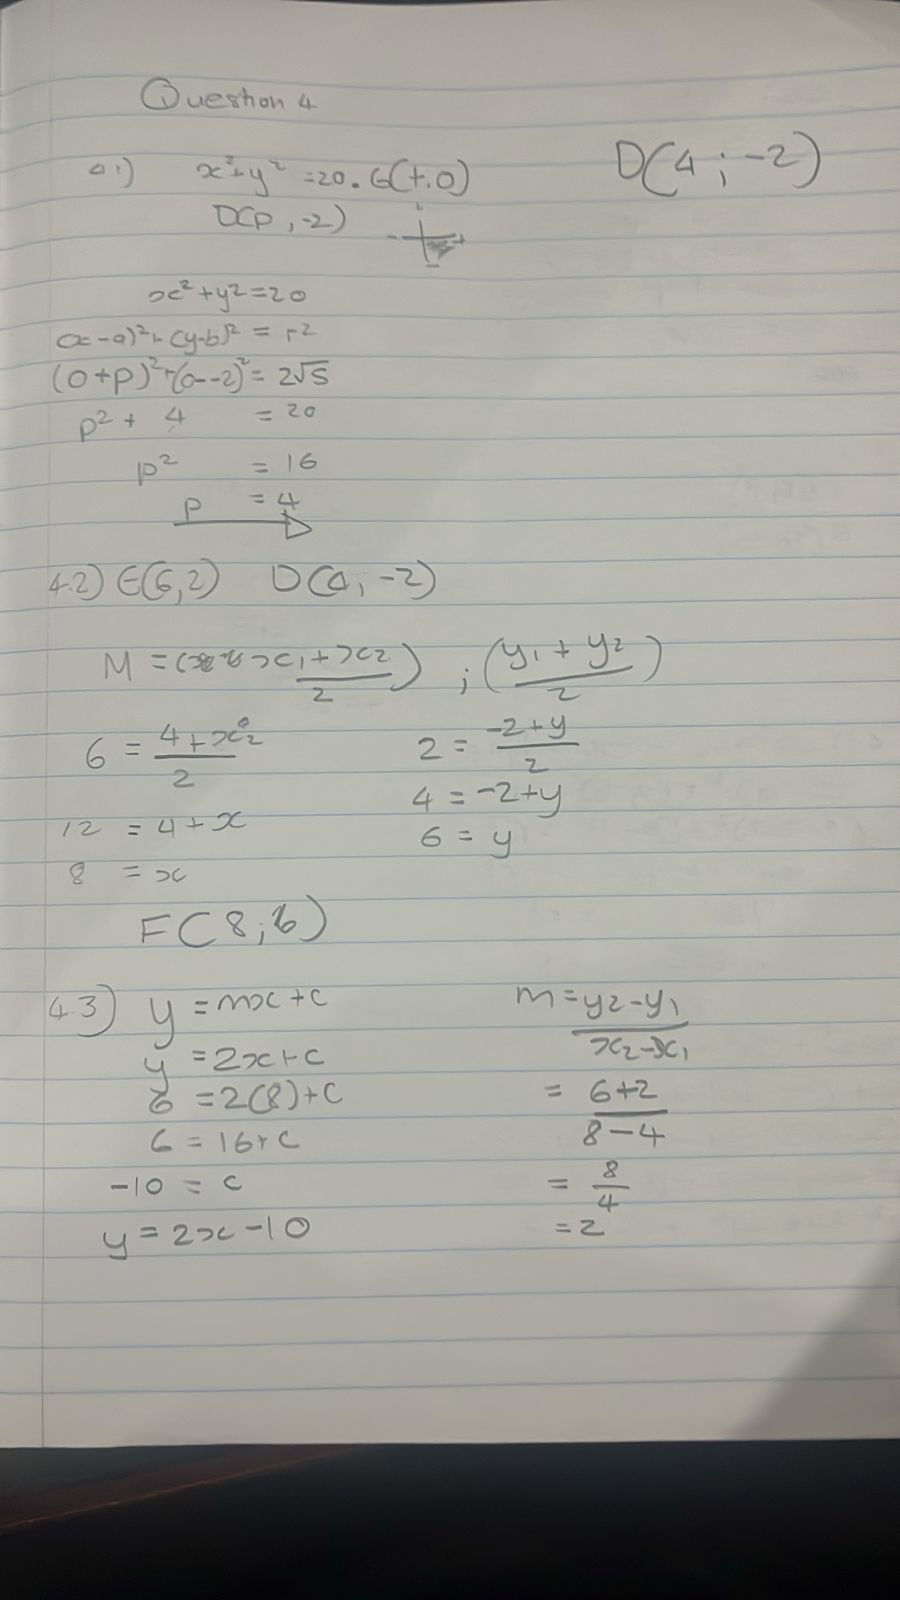 Question 4
0.1) x²+y² =20. G(t.0)
D(4 ; -2)
D(p , -2)
x²+y²=20
(x-a)²+(y-b)² = r²
(0+p)²+(0--2)² = 2√5
p² + 4 = 20
p² = 16
p = 4
4.2) E(6,2) D(4, -2)
M = (x₁+x₂/2) ; (y₁+y₂/2)
6 = 4+x₂/2
2 = -2+y/2
12 = 4+x
4 = -2+y
8 = x
6 = y
F(8;6)
4.3) y = mx+c
y = 2x+c
6 = 2(8)+c
6 = 16+c
-10 = c
y = 2x-10
m = y₂-y₁/x₂-x₁
= 6+2/8-4
= 8/4
= 2